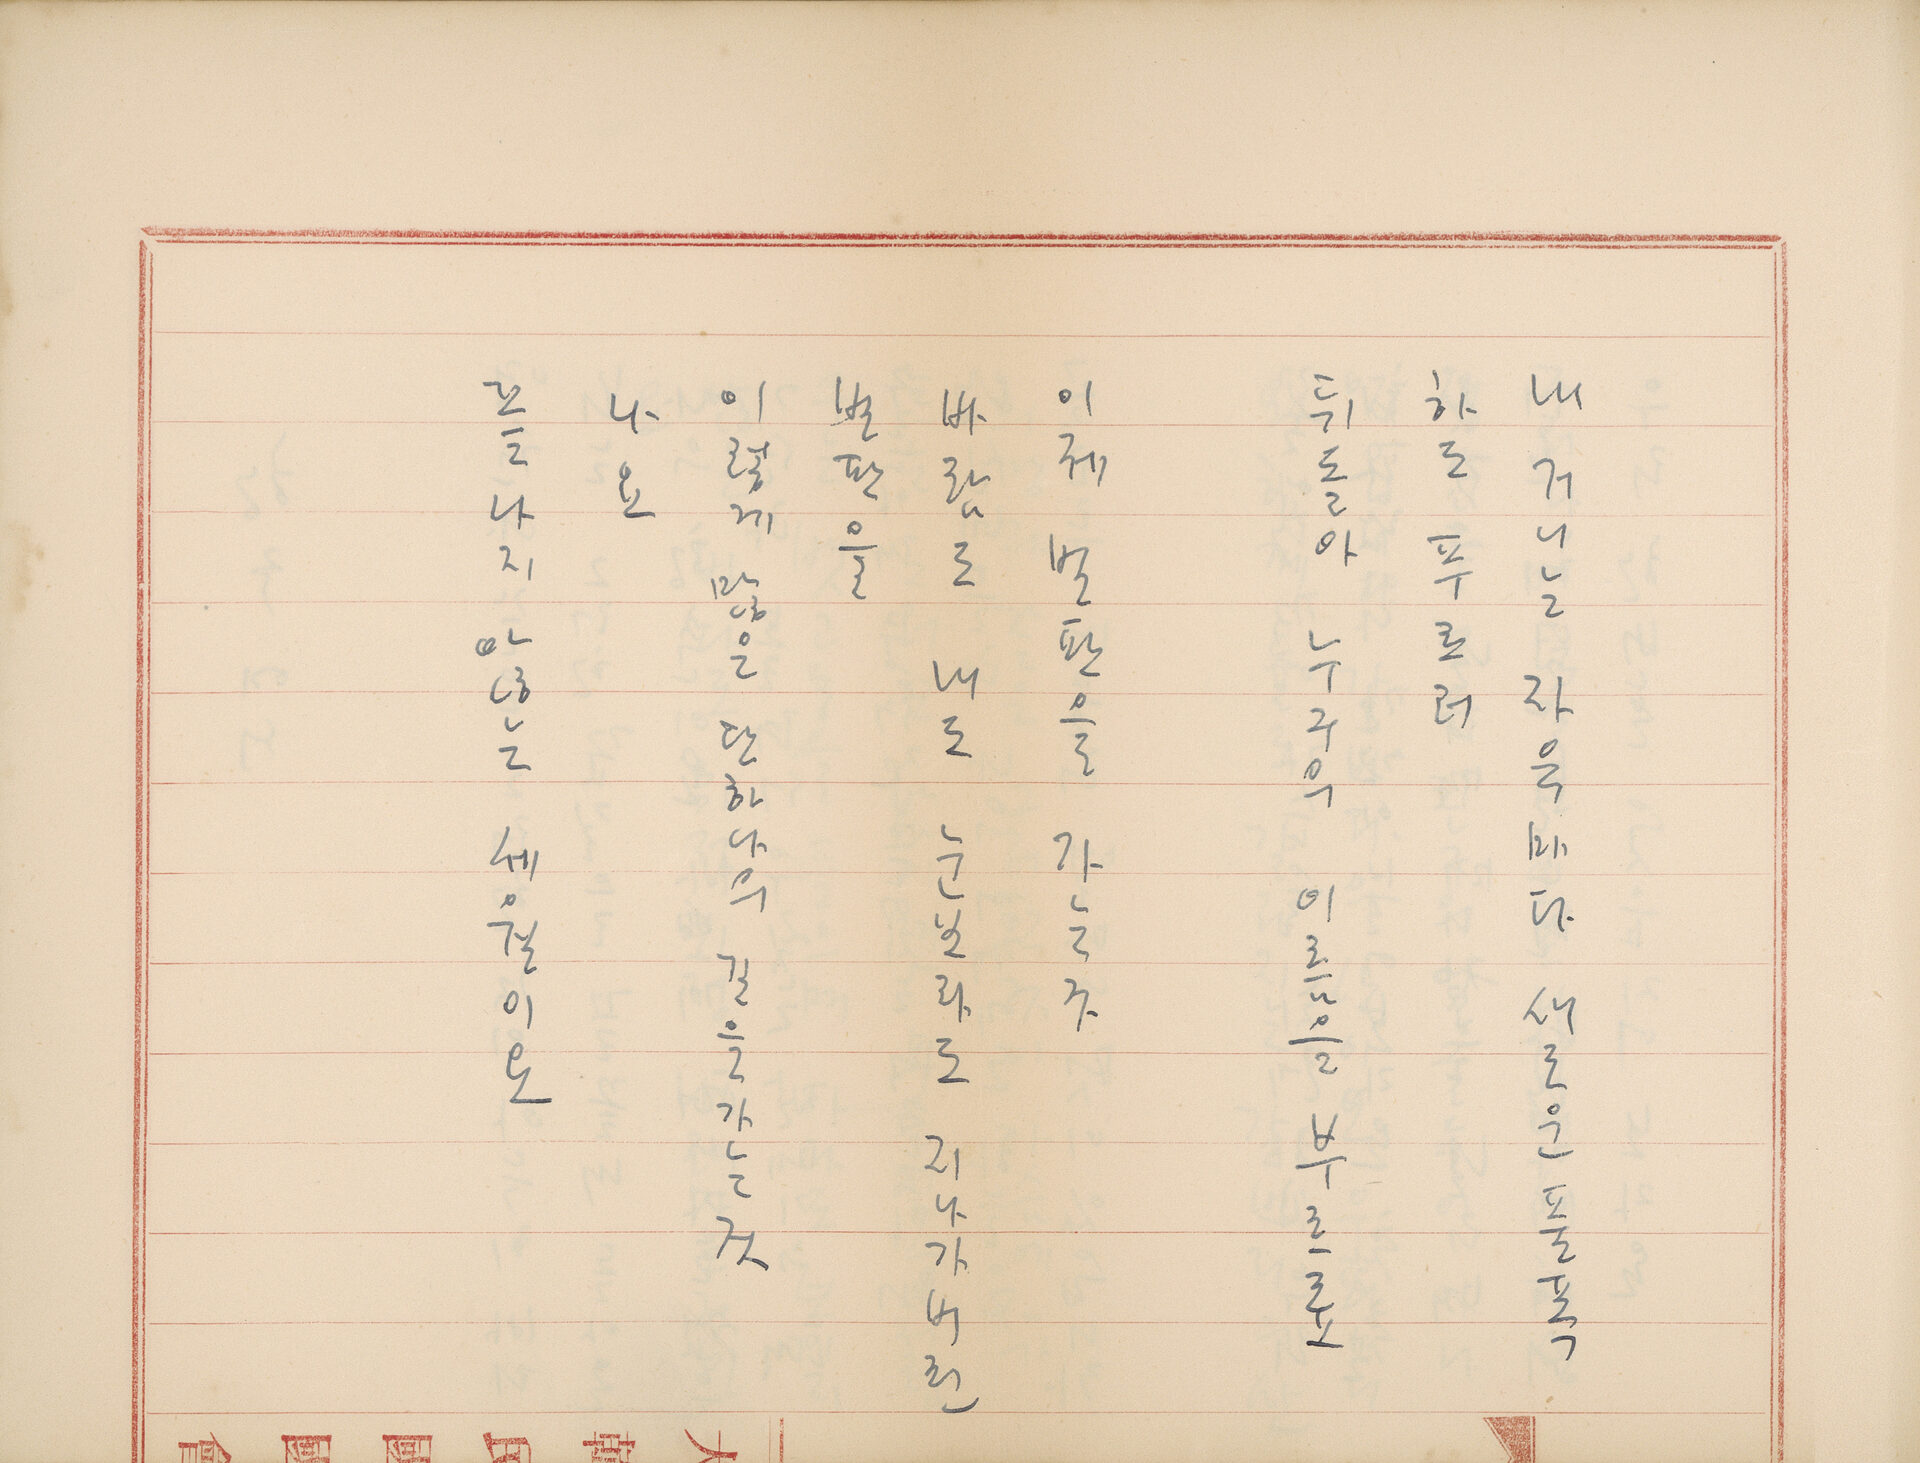 내 거니는 자욱마다 새로운 풀폭
하도 푸르러
뒤돌아 누구의 이름을
이제 벌판을 가는
바람도 내도 눈보라도 지나가버린
벌판을
이렇게 많은 단 하나의 길을 가는 것
나요
끝나지 않는 세월이요